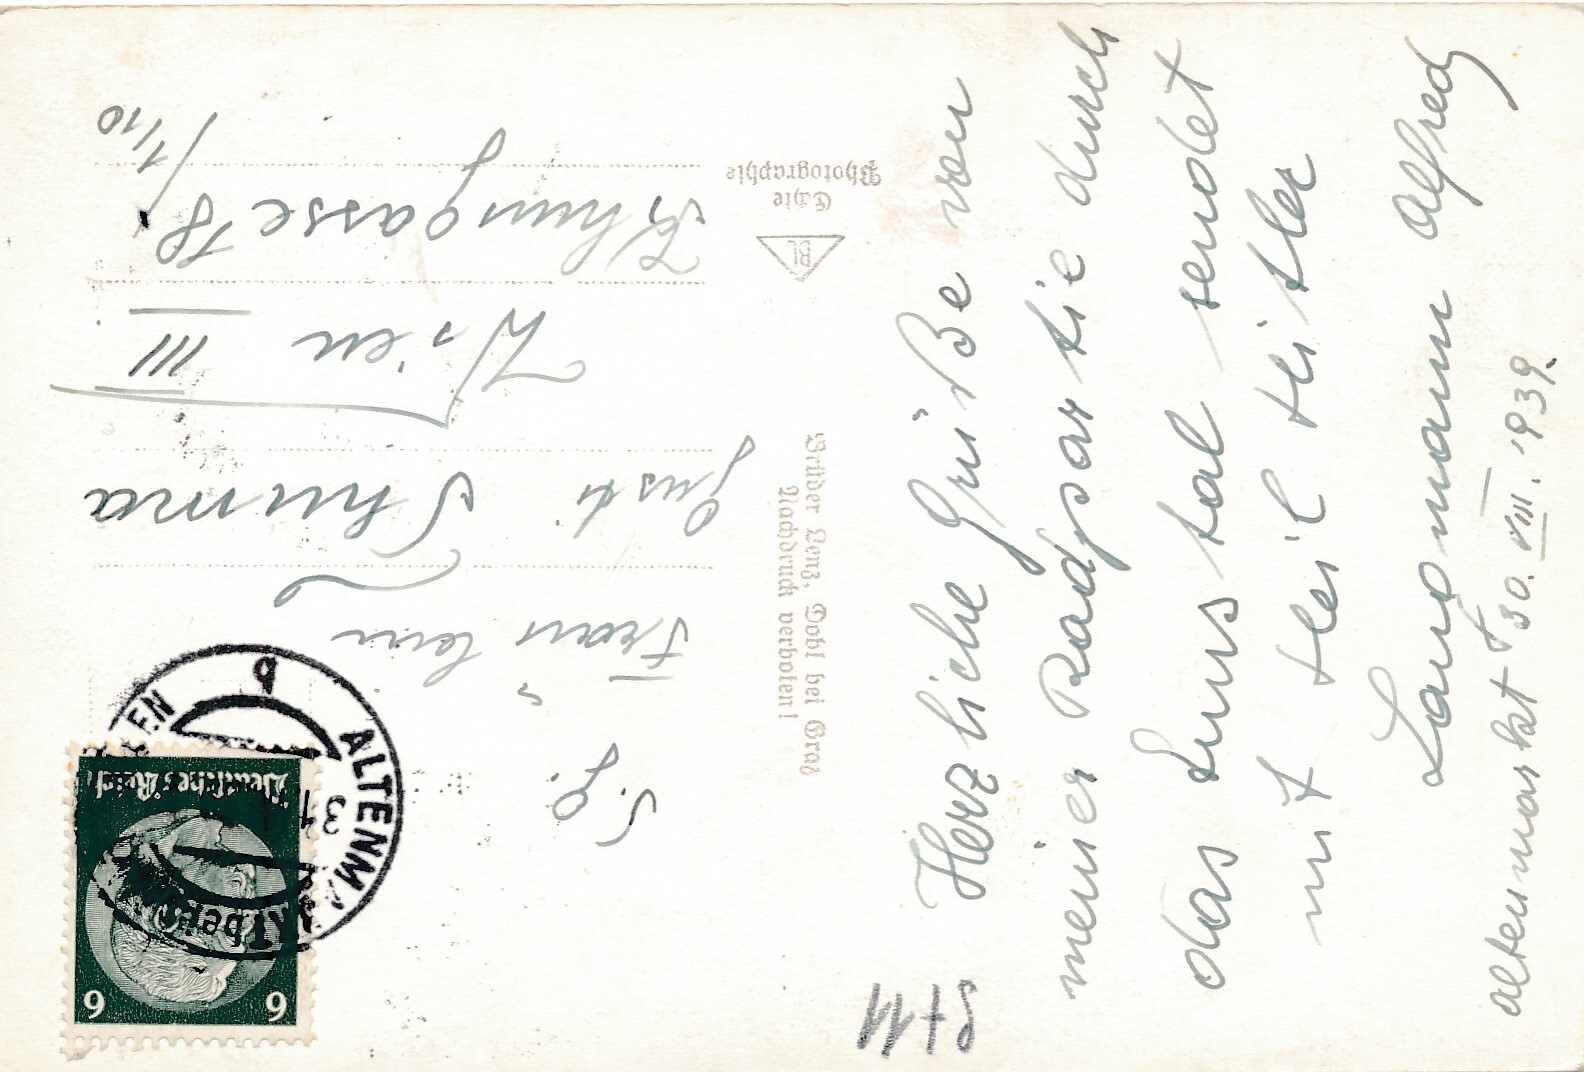 Herzliche Grüße von
meiner Radpartie durch
das Ennstal sendet
mit Heil Hitler
Langmann Alfred
Altenmarkt 30. VIII. 1939.
S. g.
Fräulein
Gusti Thuma
Wien III
Khungasse 18.
1/10
Echte
Photographie
BL
Brüder Lenz, Dobl bei Graz
Nachdruck verboten!
Deutsches Reich
6 6
ALTENMARKT bei
EN
31
b